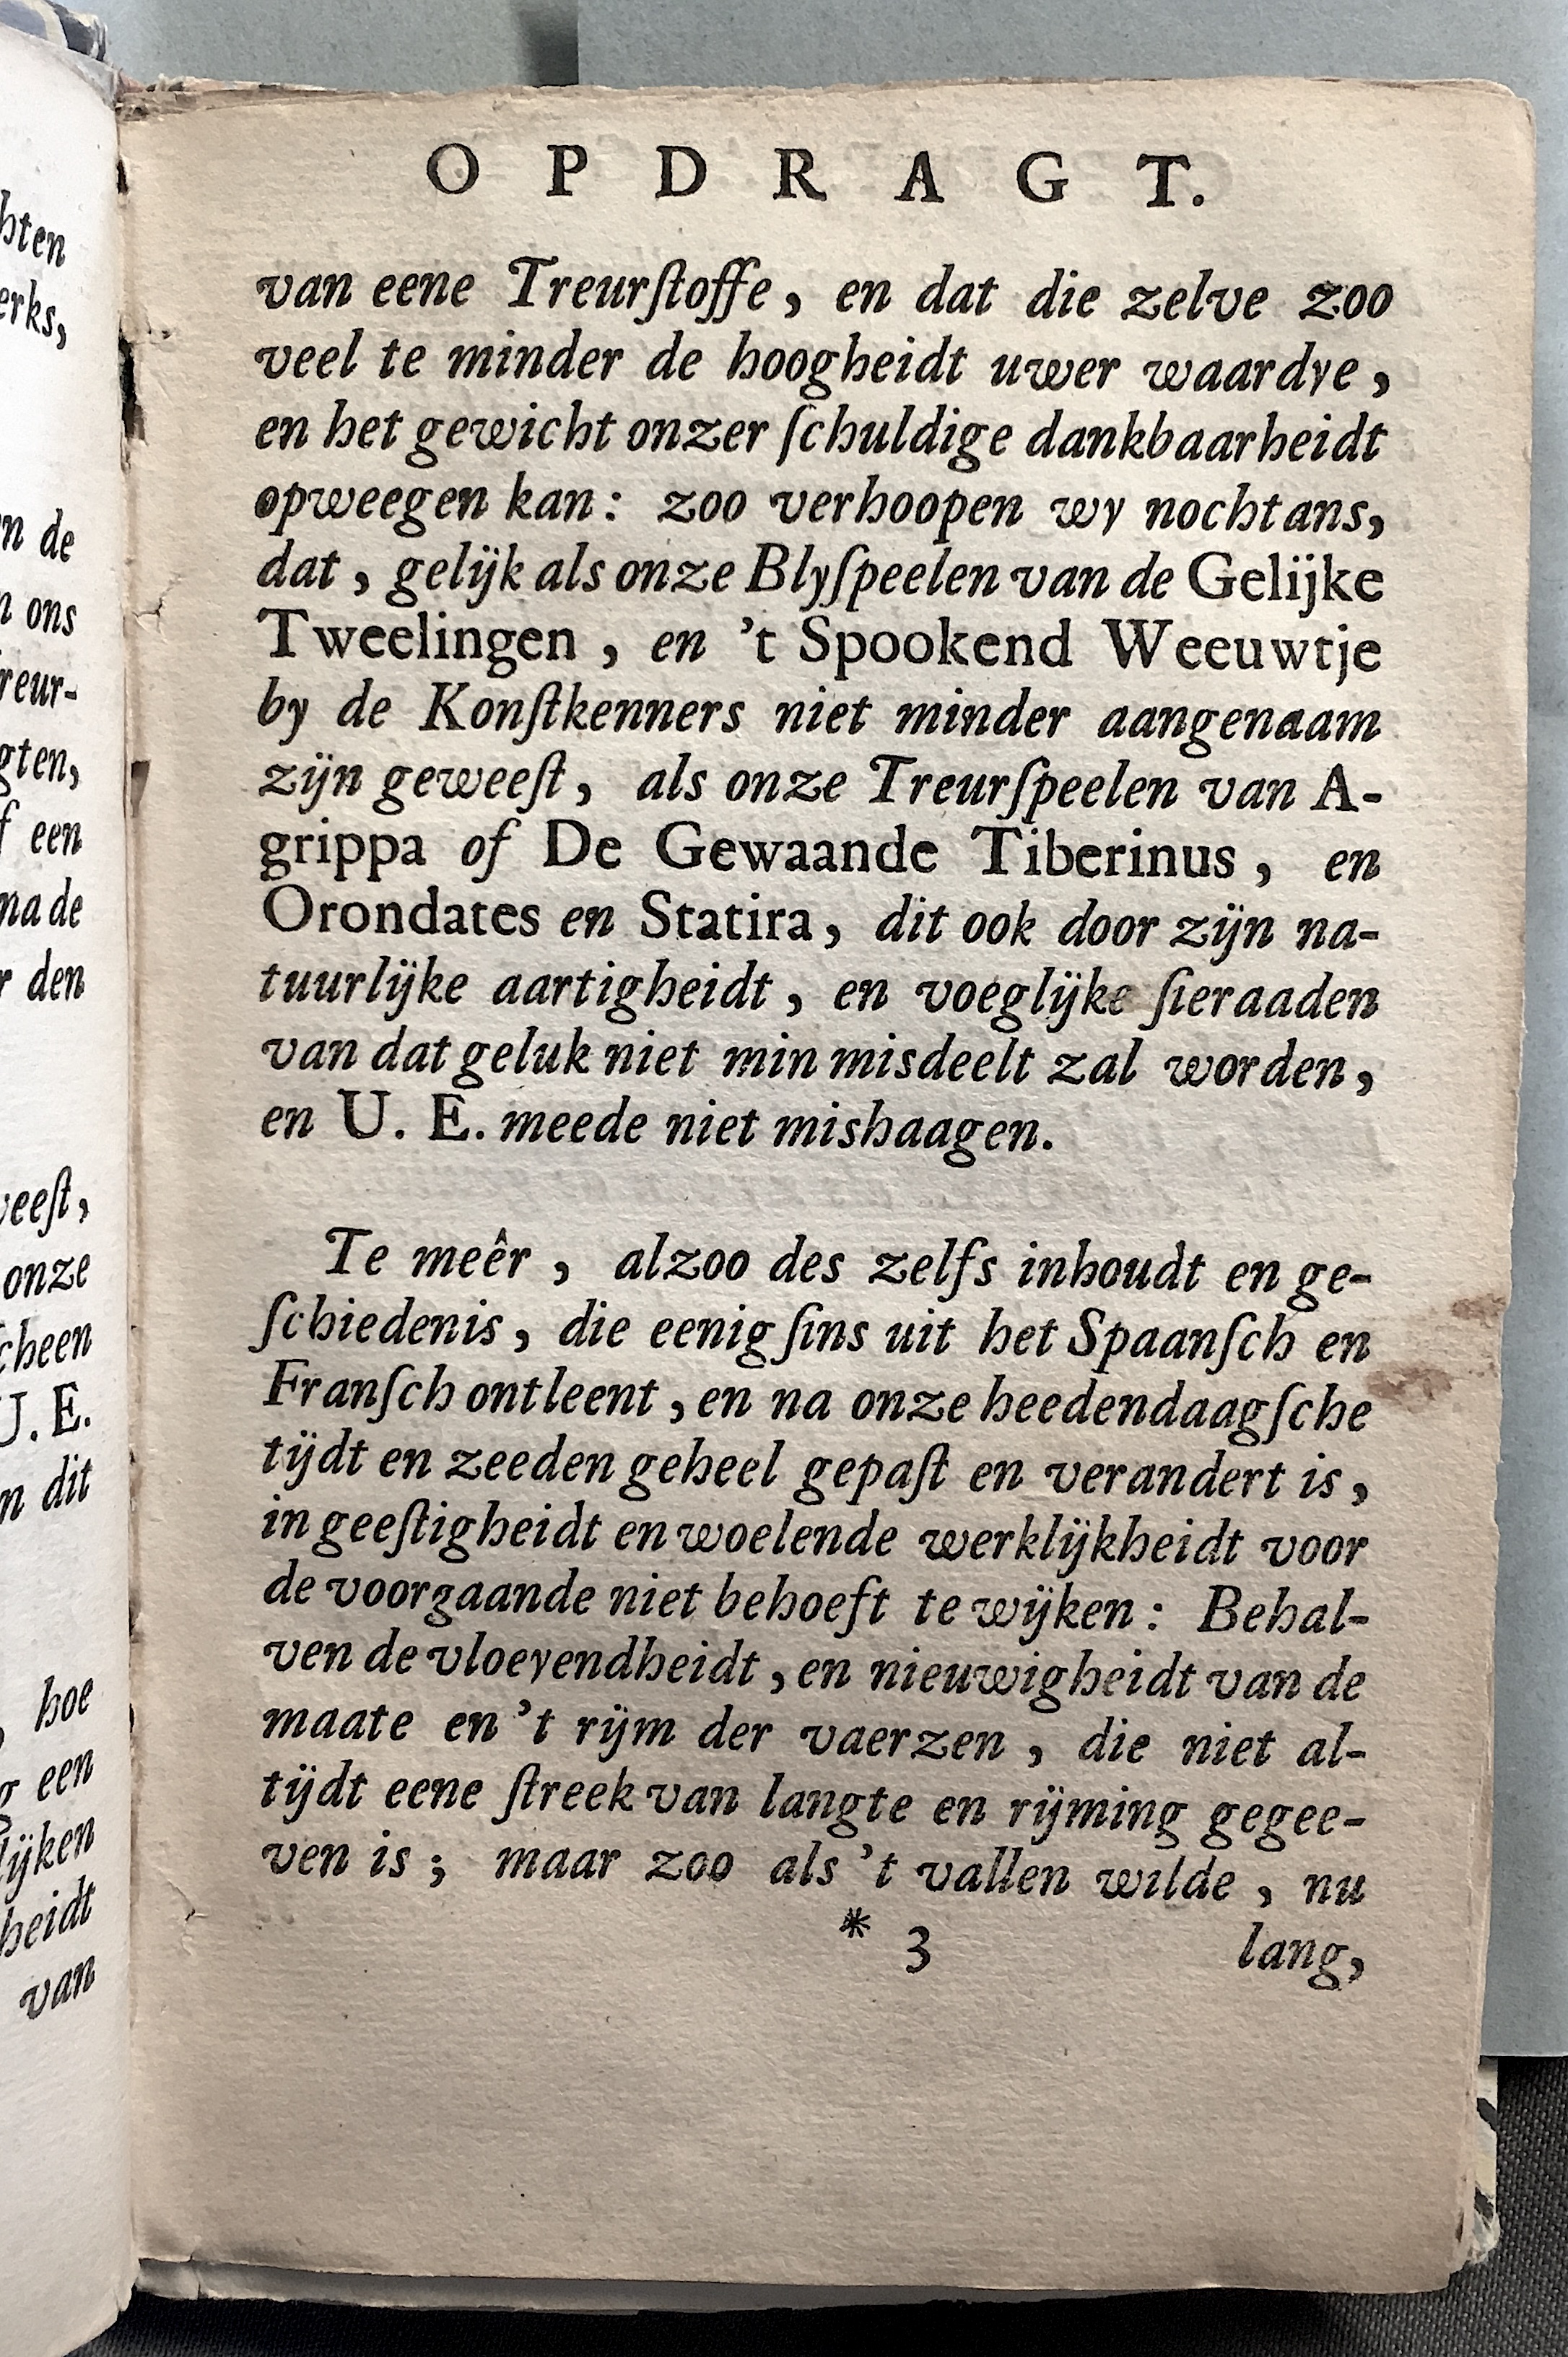 hten
erks,
n de
n ons
reur-
gten,
f een
na de
r den
veeſt,
onze
cheen
U. E.
n dit
hoe
g een
lijken
heidt
van
O P D R A G T.
van eene Treurſtoffe, en dat die zelve zoo
veel te minder de hoogheidt uwer waardye,
en het gewicht onzer ſchuldige dankbaarheidt
opweegen kan: zoo verhoopen wy nochtans,
dat, gelijk als onze Blyſpeelen van de Gelijke
Tweelingen, en 't Spookend Weeuwtje
by de Konſtkenners niet minder aangenaam
zijn geweeſt, als onze Treurſpeelen van A-
grippa of De Gewaande Tiberinus, en
Orondates en Statira, dit ook door zijn na-
tuurlijke aartigheidt, en voeglijke ſieraaden
van dat geluk niet min misdeelt zal worden,
en U. E. meede niet mishaagen.
Te meêr, alzoo des zelfs inhoudt en ge-
ſchiedenis, die eenig ſins uit het Spaanſch en
Franſch ontleent, en na onze heedendaagſche
tijdt en zeeden geheel gepaſt en verandert is,
in geeſtigheidt en woelende werklijkheidt voor
de voorgaande niet behoeft te wijken: Behal-
ven de vloeyendheidt, en nieuwigheidt van de
maate en 't rijm der vaerzen, die niet al-
tijdt eene ſtreek van langte en rijming gegee-
ven is; maar zoo als 't vallen wilde, nu
* 3 lang,